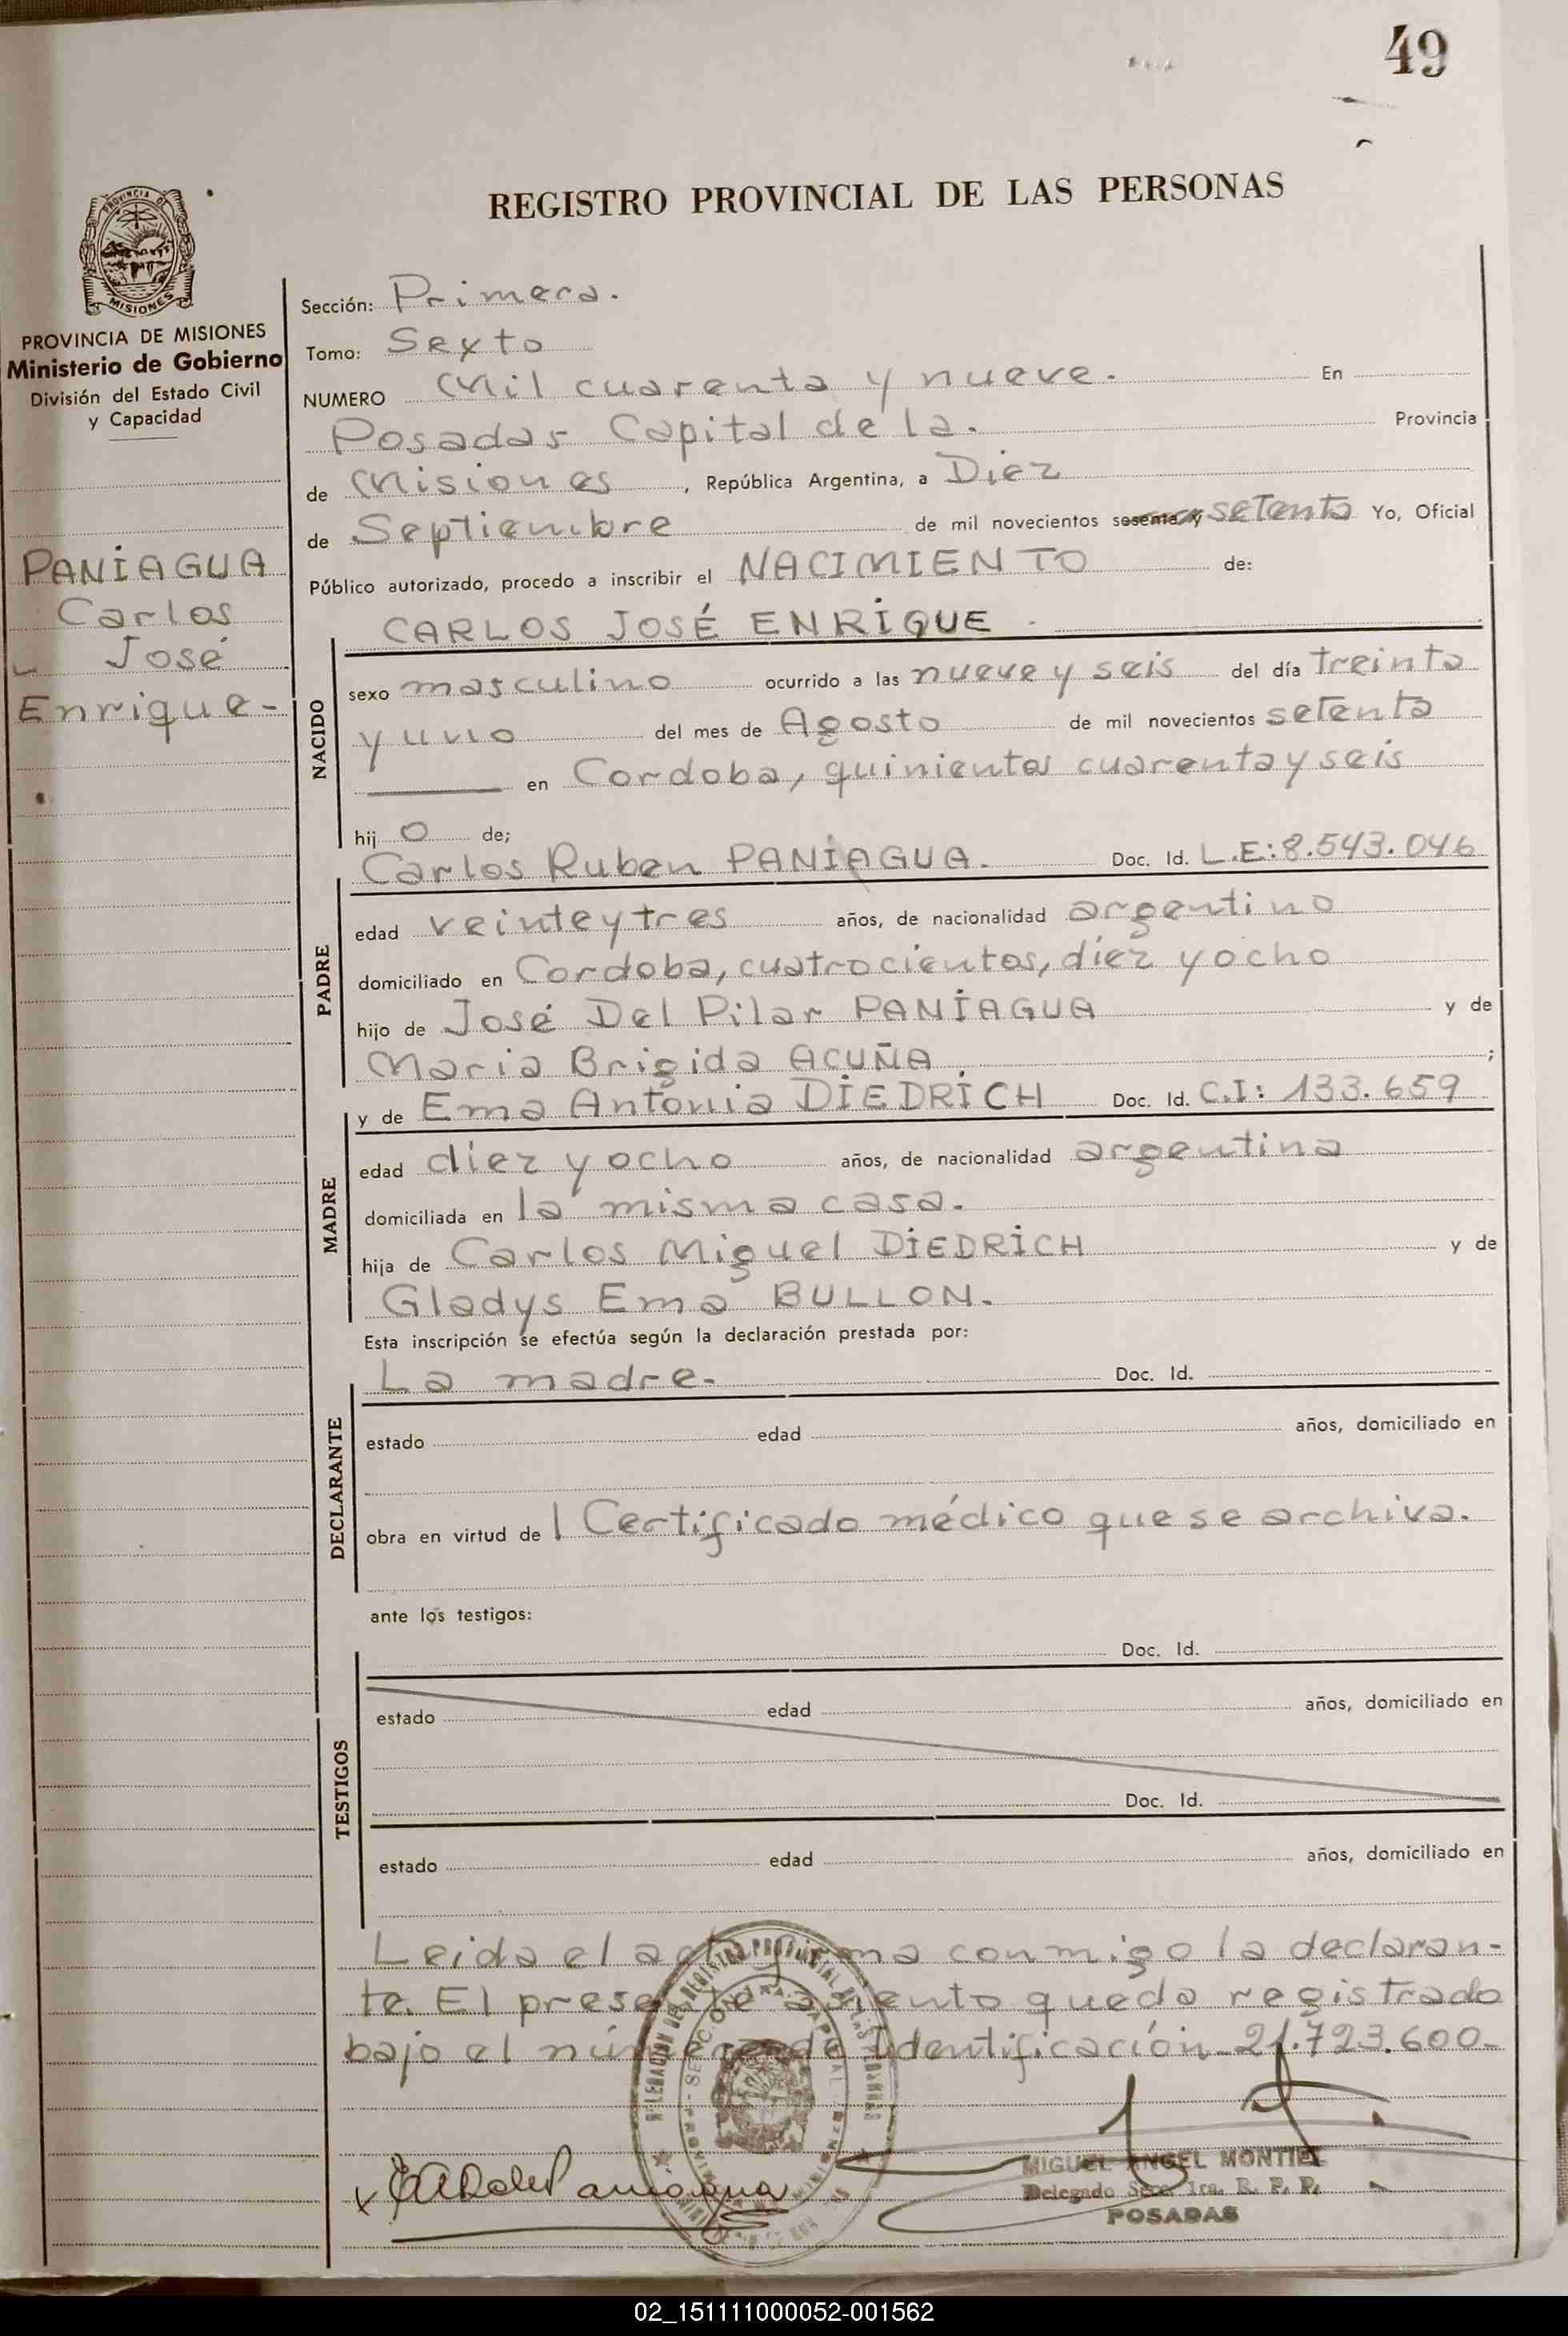 49
REGISTRO PROVINCIAL DE LAS PERSONAS
PROVINCIA DE
MISIONES
PROVINCIA DE MISIONES
Ministerio de Gobierno
División del Estado Civil
y Capacidad
PANIAGUA
Carlos
José
Enrique-
Sección: Primera.
Tomo: Sexto
NUMERO Mil cuarenta y nueve. En
Posadas Capital de la. Provincia
de Misiones, República Argentina, a Diez
de Septiembre de mil novecientos sesenta y setenta Yo, Oficial
Público autorizado, procedo a inscribir el NACIMIENTO de:
CARLOS JOSÉ ENRIQUE -
NACIDO
sexo masculino ocurrido a las nueve y seis del día treinta
y uno del mes de Agosto de mil novecientos setenta
en Cordoba, quinientos cuarenta y seis
hij o de;
PADRE
Carlos Ruben PANIAGUA. Doc. Id. L.E: 8.543.046
edad veinte y tres años, de nacionalidad argentino
domiciliado en Cordoba, cuatrocientos, diez y ocho
hijo de José Del Pilar PANIAGUA y de
Maria Brigida ACUÑA ;
MADRE
y de Ema Antonia DIEDRICH Doc. Id. C.I: 133.659
edad diez y ocho años, de nacionalidad argentina
domiciliada en la misma casa.
hija de Carlos Miguel DIEDRICH y de
Gladys Ema BULLON.
Esta inscripción se efectúa según la declaración prestada por:
DECLARANTE
La madre. Doc. Id.
estado edad años, domiciliado en
obra en virtud de 1 Certificado médico que se archiva.
ante los testigos:
TESTIGOS
Doc. Id.
estado edad años, domiciliado en
Doc. Id.
estado edad años, domiciliado en
Leida el acta firma conmigo la declaran-
te. El presente asiento queda registrado
bajo el número de Identificación 21.723.600-
x Paniagua
MIGUEL ANGEL MONTIEL
Delegado Secc. 1ra. R. P. P.
POSADAS
02_151111000052-001562